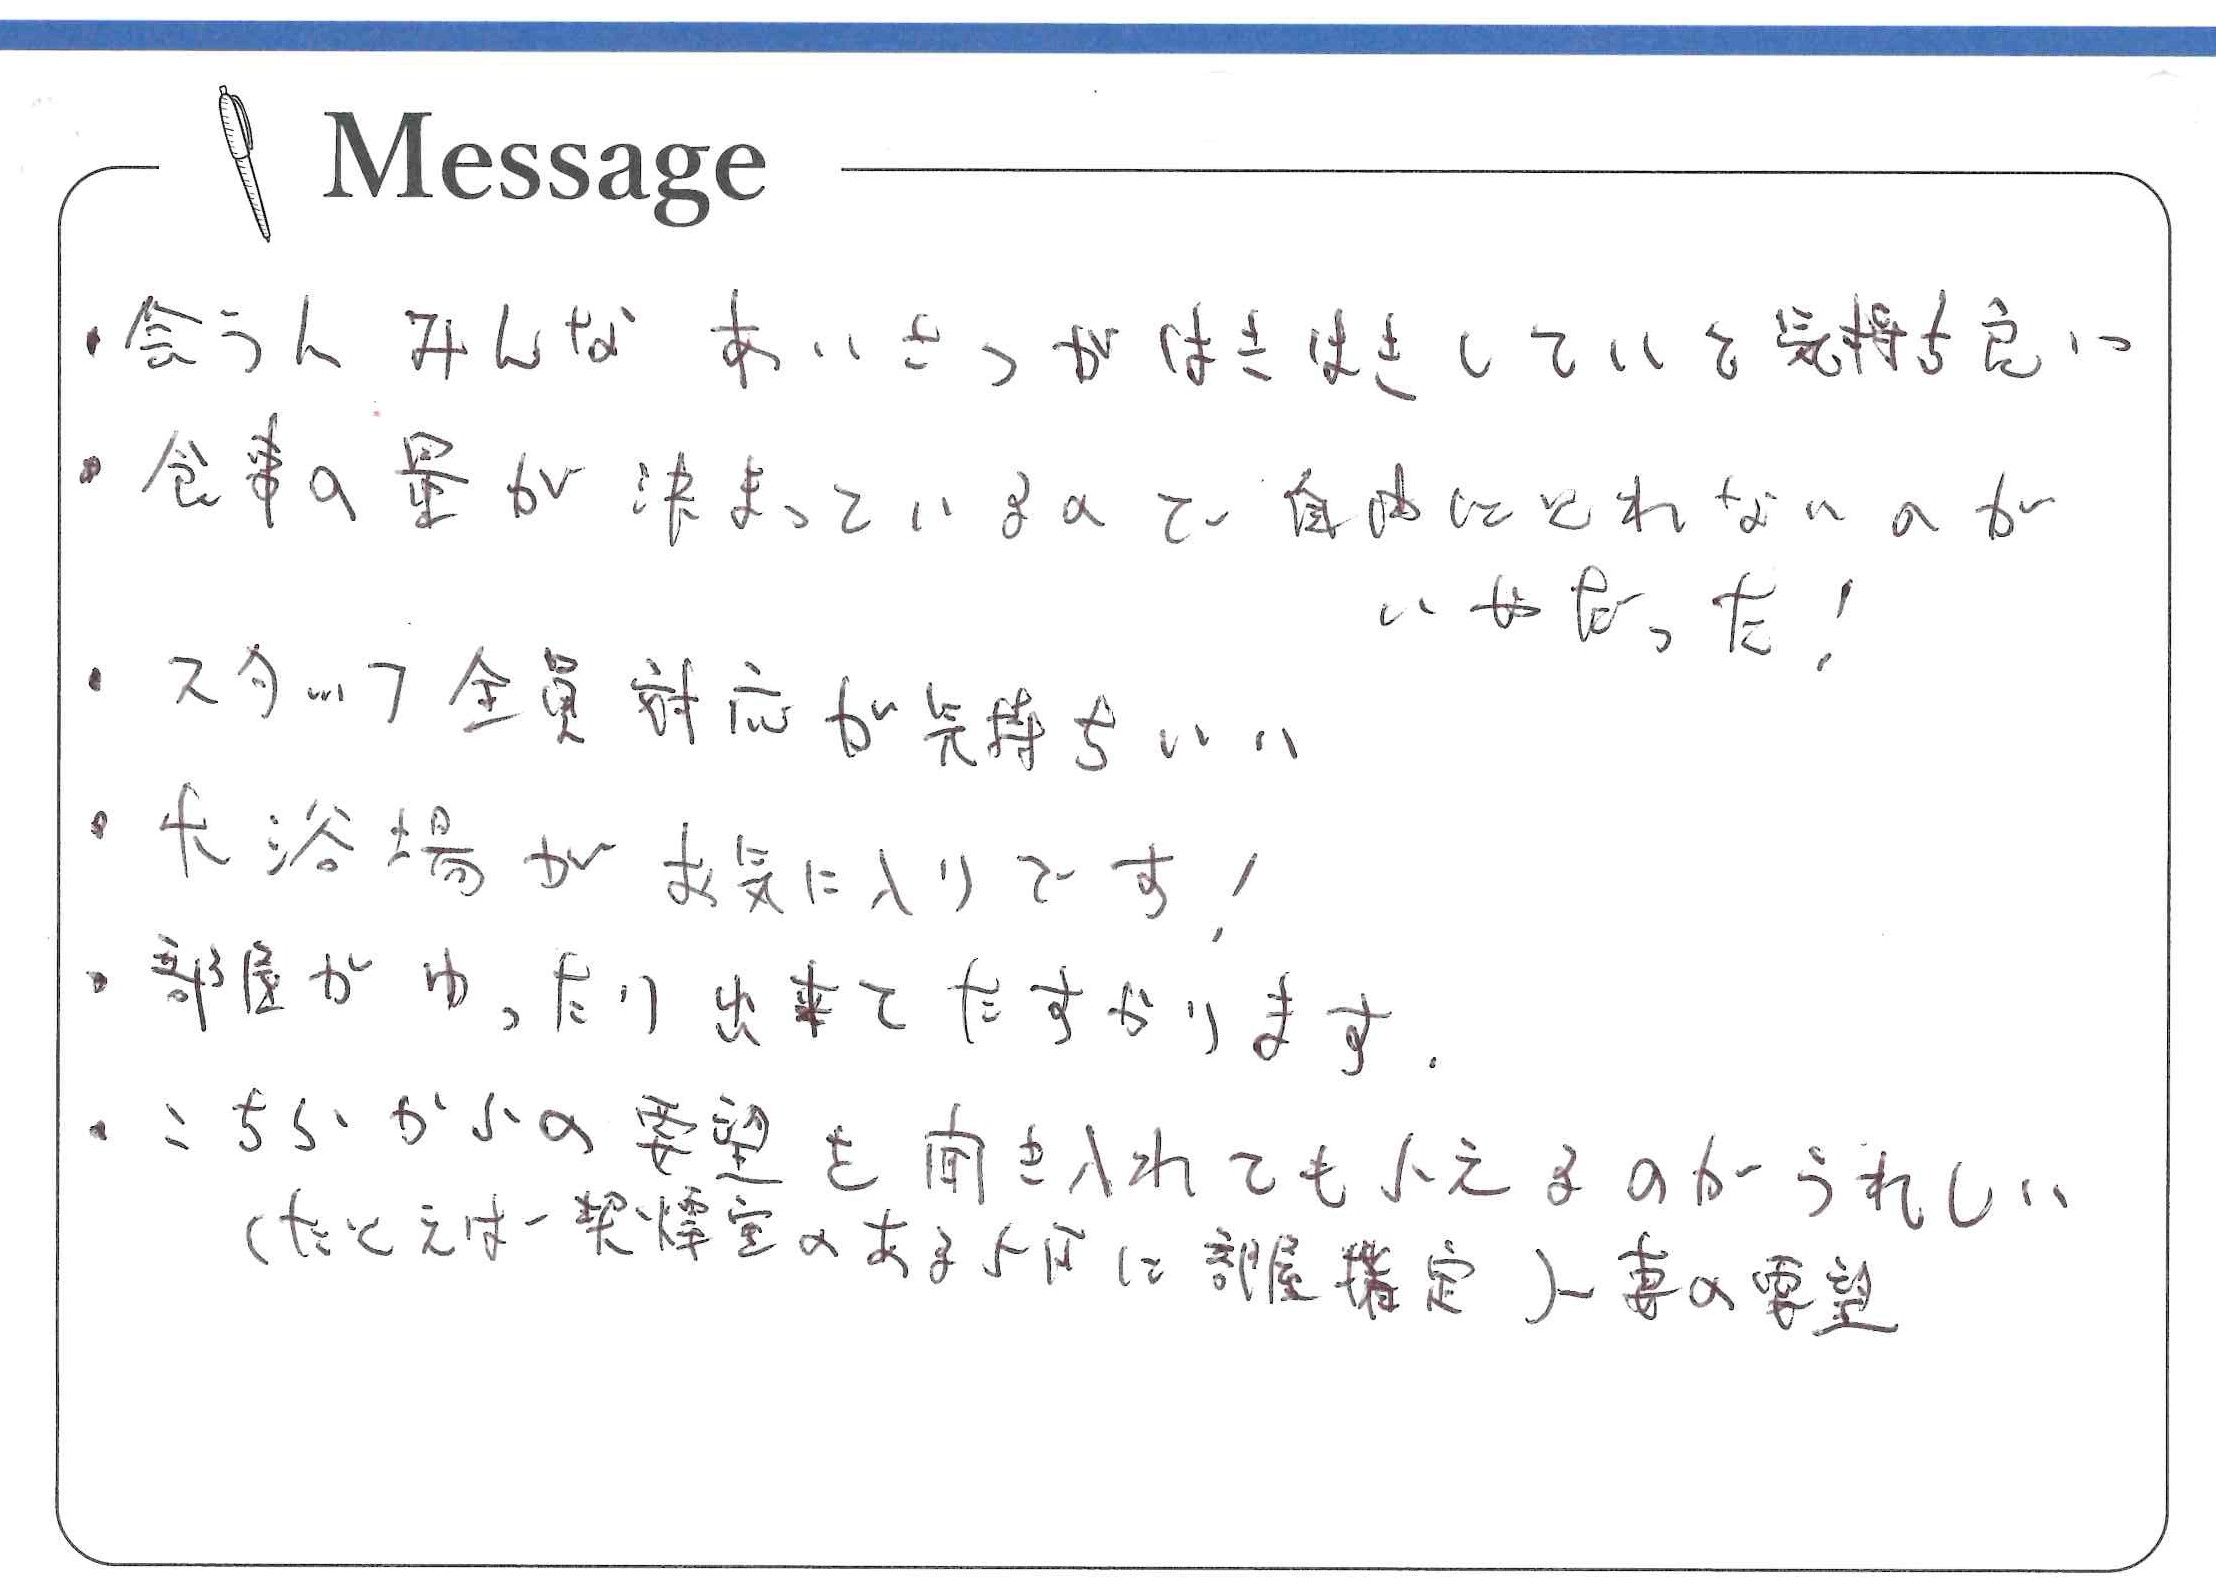 Message
・会う人 みんな あいさつが はきはきしていて気持ち良い
・食事の量が決まっているので自由にとれないのが
いやだった!
・スタッフ全員対応が気持ちいい
・大浴場がお気に入りです!
・部屋がゆったり出来てたすかります.
・こちらからの要望を聞き入れてもらえるのがうれしい
(たとえば 喫煙室のある に部屋 定)
妻の要望